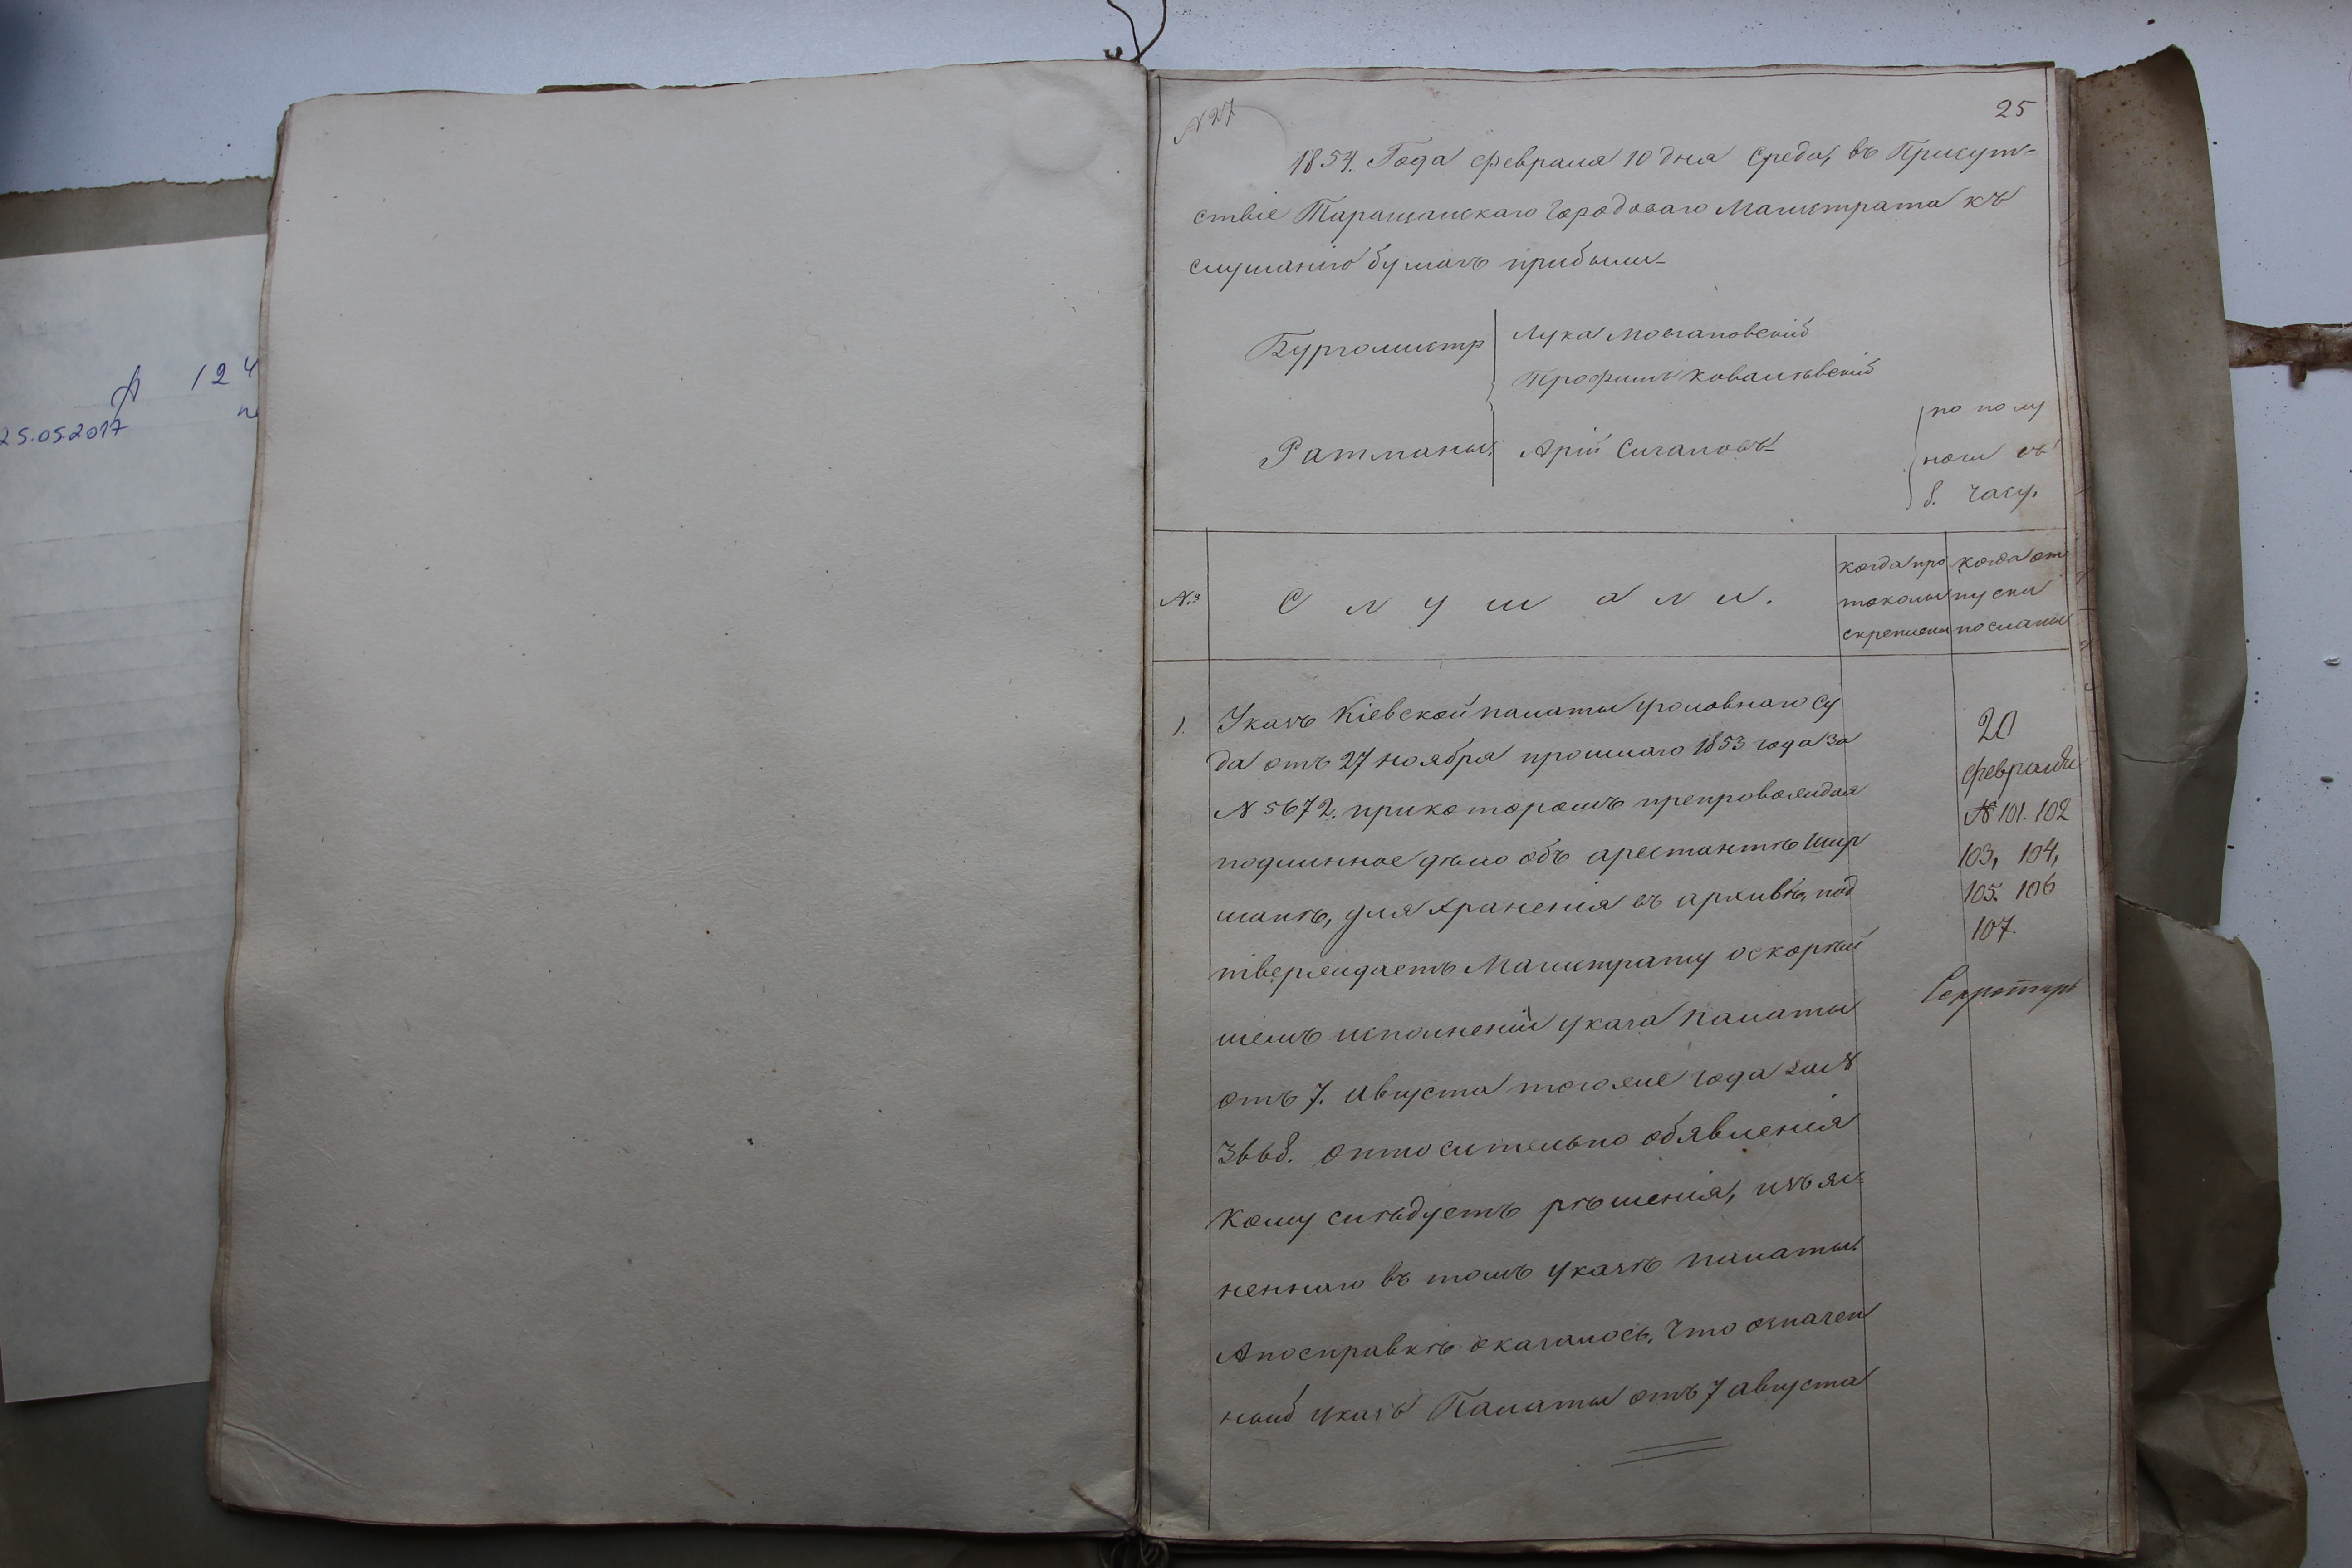 А 124
25.05.2017
N 27
25
1854. Года февраля 10 дня Среда, въ Присут-
ствіе Таращанскаго Городоваго Магистрата къ
слушанію бумагъ прибыли-
Бургомистр
Лука
Трофимъ Ковалѣвскій
Ратманы:
Арій
по полу
ночи въ
8. часу.
№
Слушали.
когда про
токолы
скреплены
когда от
пуски
посланы
1.
Указъ Кіевской палаты уголовнаго Су
да отъ 27 ноября прошлаго 1853 года за
N 5672. при которомъ препровождая
подлинное дѣло объ арестантѣ Шир
манѣ, для храненія въ архивѣ, под
тверждаетъ Магистрату о скорѣй
шемъ исполненіи указа палаты
отъ 7. Августа тогоже года за N
3668. относительно обявленія
кому слѣдуетъ рѣшенія, изъяс-
неннаго въ томъ указѣ палаты.
А посправкѣ оказалось, что означен
ный указъ Палаты отъ 7 августа
20
февраля
N 101. 102
103, 104,
105. 106
107.
Секретарь